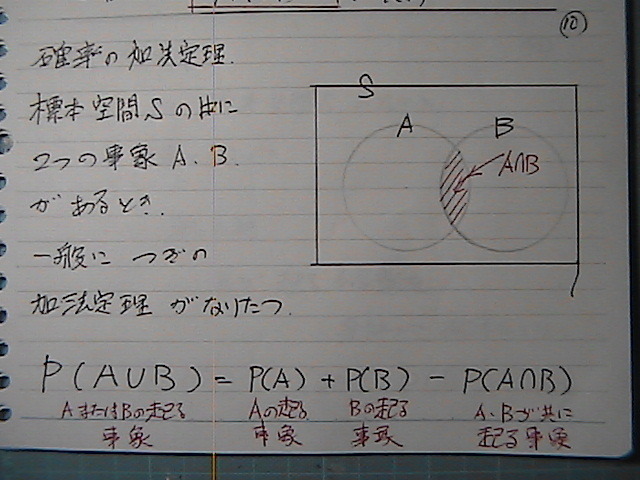 ⑩
確率の加法定理.
標本空間Sの中に
2つの事象 A、B.
があるとき.
一般に つぎの
加法定理 がなりたつ.
S
A B
A∩B
P(A∪B) = P(A) + P(B) − P(A∩B)
AまたはBの起る Aの起る Bの起る A、Bが共に
事象 事象 事象 起る事象